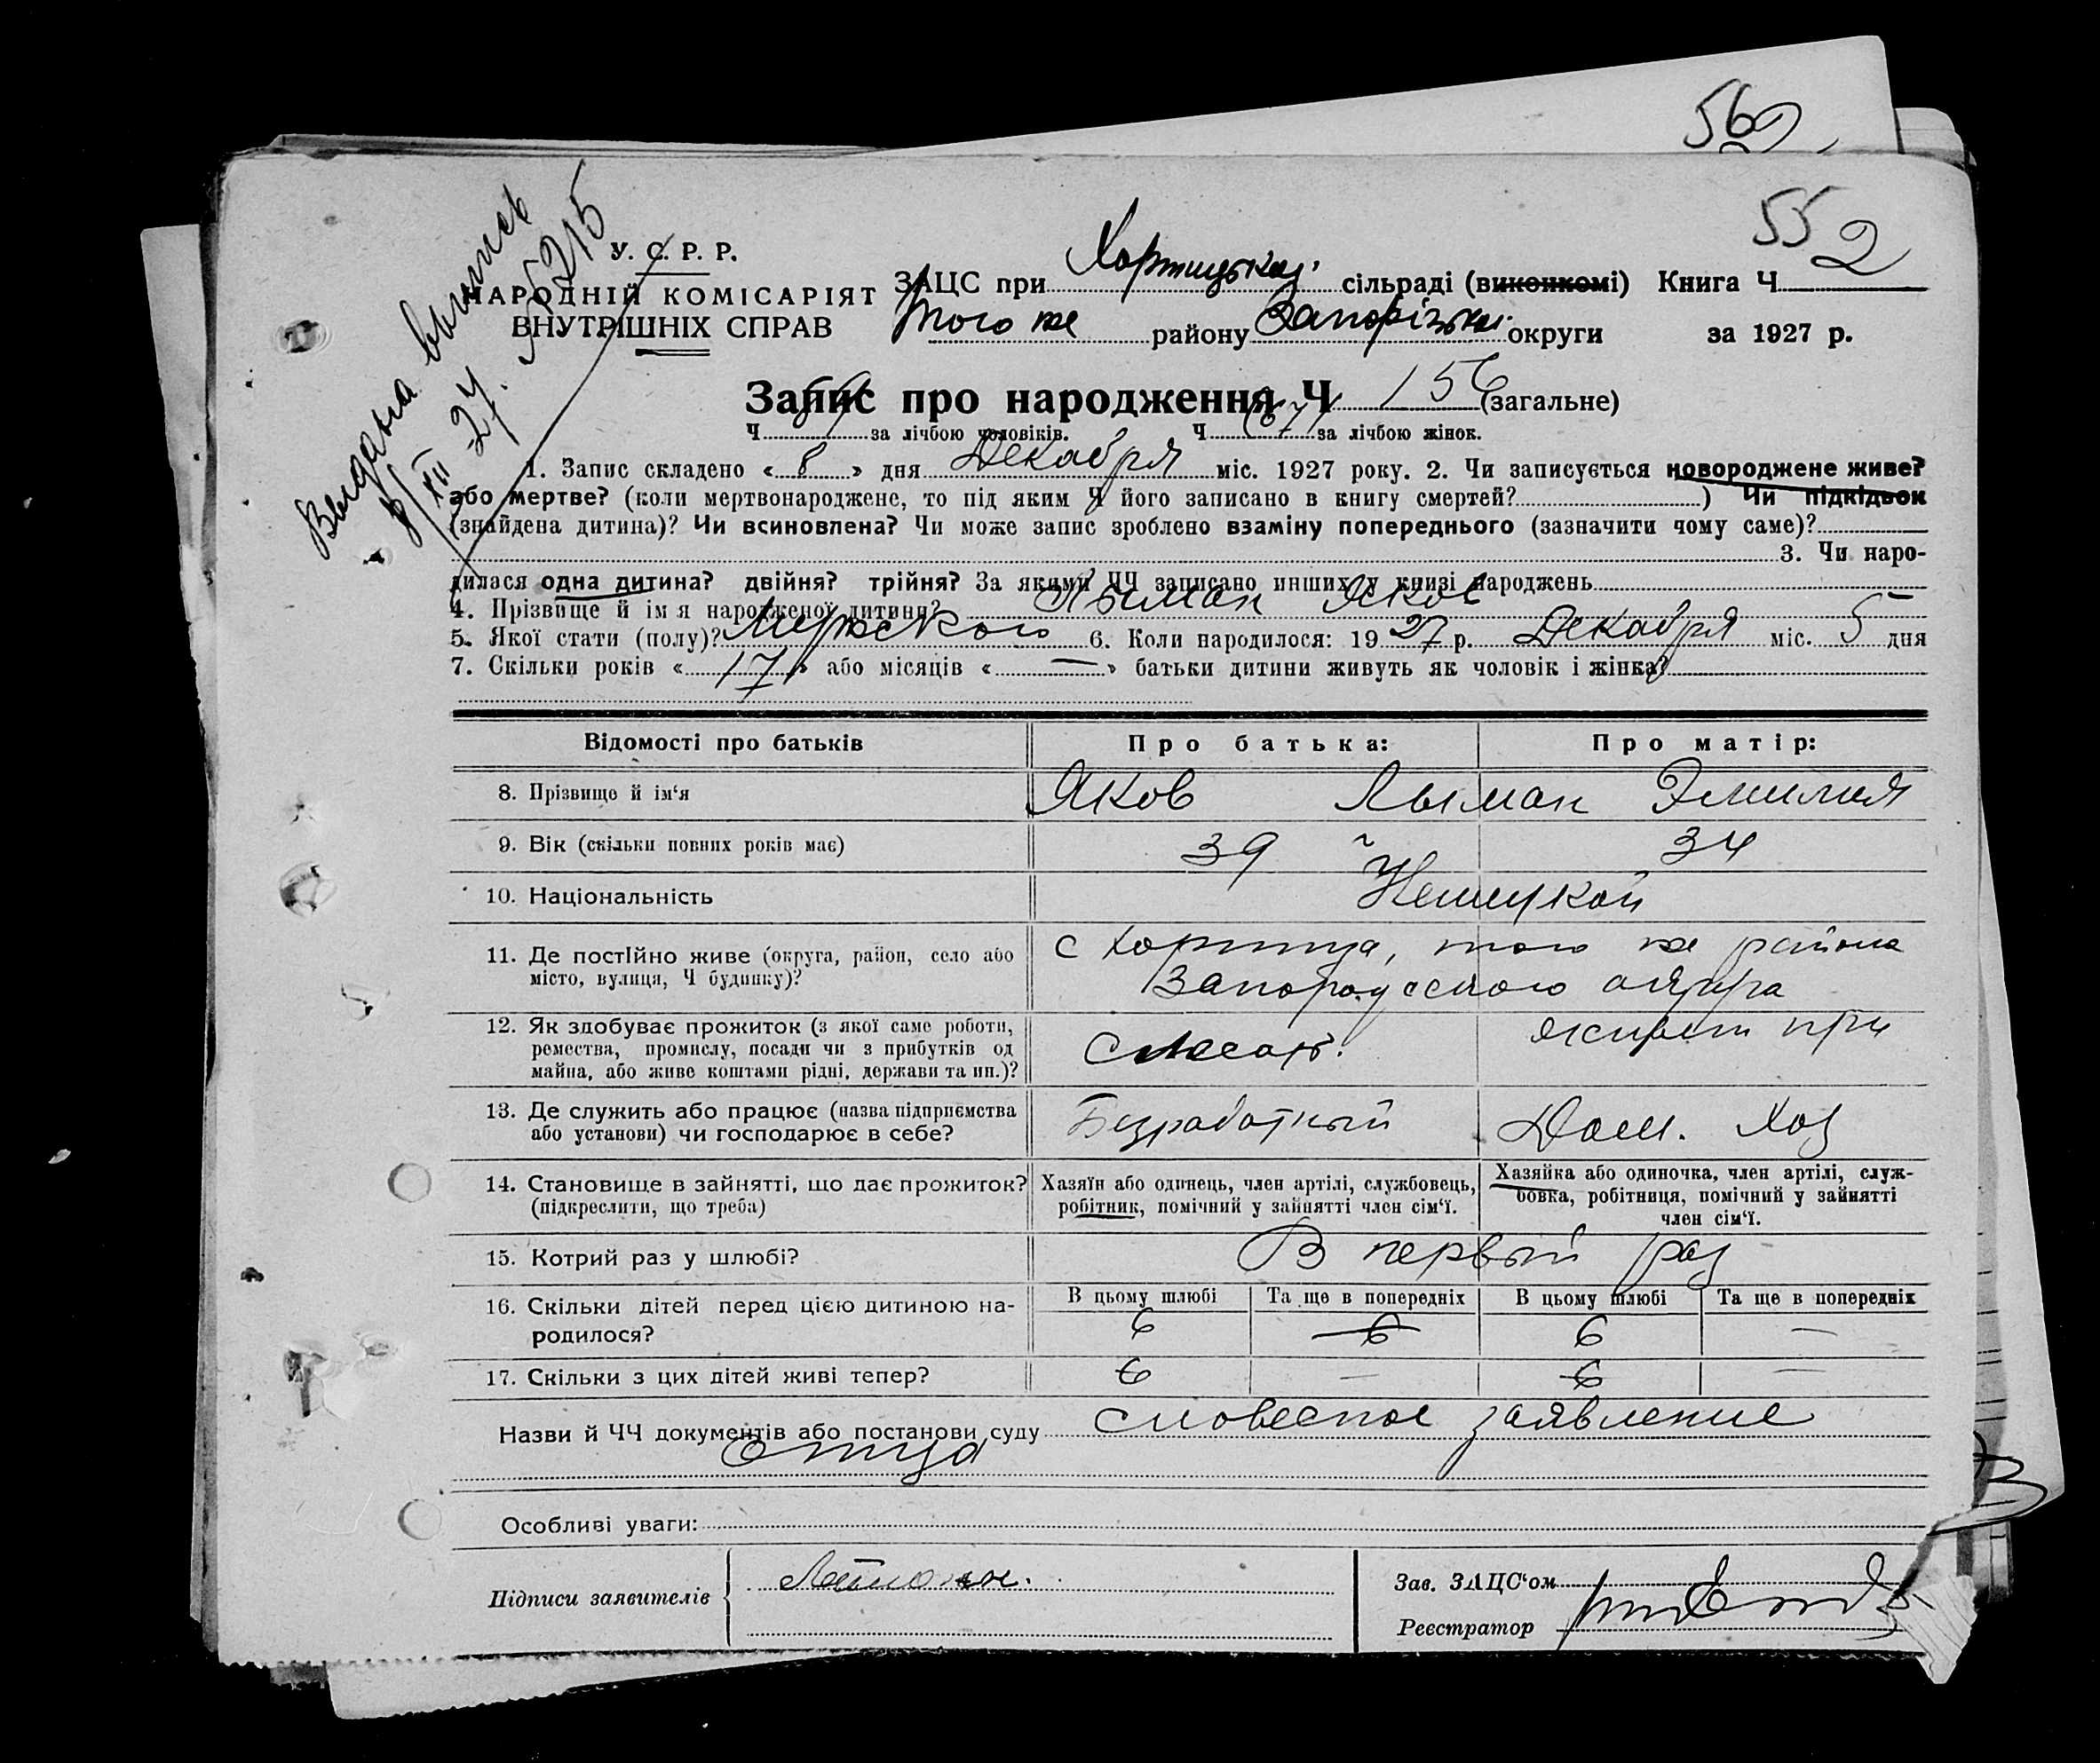 569
55 2
Выдана выпись
8/XII 27. № 215
У. С. Р. Р.
НАРОДНІЙ КОМІСАРІЯТ
ВНУТРІШНІХ СПРАВ
ЗАЦС при Хортицькой сільраді (виконкомі) Книга Ч
Того же району Запорізьк. округи за 1927 р.
Запис про народження Ч 156 (загальне)
Ч за лічбою чоловіків. Ч за лічбою жінок.
1. Запис складено « 8 » дня Декабря міс. 1927 року. 2. Чи записується новороджене живе?
або мертве? (коли мертвонароджене, то під яким Ч його записано в книгу смертей? ) Чи підкідьок
(знайдена дитина)? Чи всиновлена? Чи може запис зроблено взаміну попереднього (зазначити чому саме)?
3. Чи наро-
дилася одна дитина? двійня? трійня? За якими ЧЧ записано инших у книзі народжень
4. Прізвище й імя народженої дитини? Яков
5. Якої стати (полу)? Мужского 6. Коли народилося: 1927 р. Декабря міс. 5 дня
7. Скільки років « 17 » або місяців « — » батьки дитини живуть як чоловік і жінка?
Відомості про батьків Про батька: Про матір:
8. Прізвище й ім‘я Яков Лыман Эмилия
9. Вік (скільки повних років має) 39 34
10. Національність Немецкой
11. Де постІйно живе (округа, район, село або
місто, вулиця, Ч будинку)?
с Хортица, того же района
Запорожского округа
12. Як здобуває прожиток (з якої саме роботи,
ремества, промислу, посади чи з прибутків од
майна, або живе коштами рідні, держави та ин.)?
Слесарь. живет при
13. Де служить або працює (назва підприємства
або установи) чи господарює в себе?
Безработный Дом. Хоз
14. Становище в зайнятті, що дає прожиток?
(підкреслити, що треба)
Хазяїн або одинець, член артілі, службовець,
робітник, помічний у зайнятті член сім‘ї.
Хазяйка або одиночка, член артілі, служ-
бовка, робітниця, помічний у зайнятті
член сім‘ї.
15. Котрий раз у шлюбі? В первый раз
16. Скільки дітей перед цією дитиною на-
родилося?
В цьому шлюбі Та ще в попередніх В цьому шлюбі Та ще в попередніх
6 6 6 —
17. Скільки з цих дітей живі тепер? 6 — 6 —
Назви й ЧЧ документів або постанови суду словесное заявление
отца
Особливі уваги:
Підписи заявителів
Зав. ЗАЦС‘ом
Реєстратор